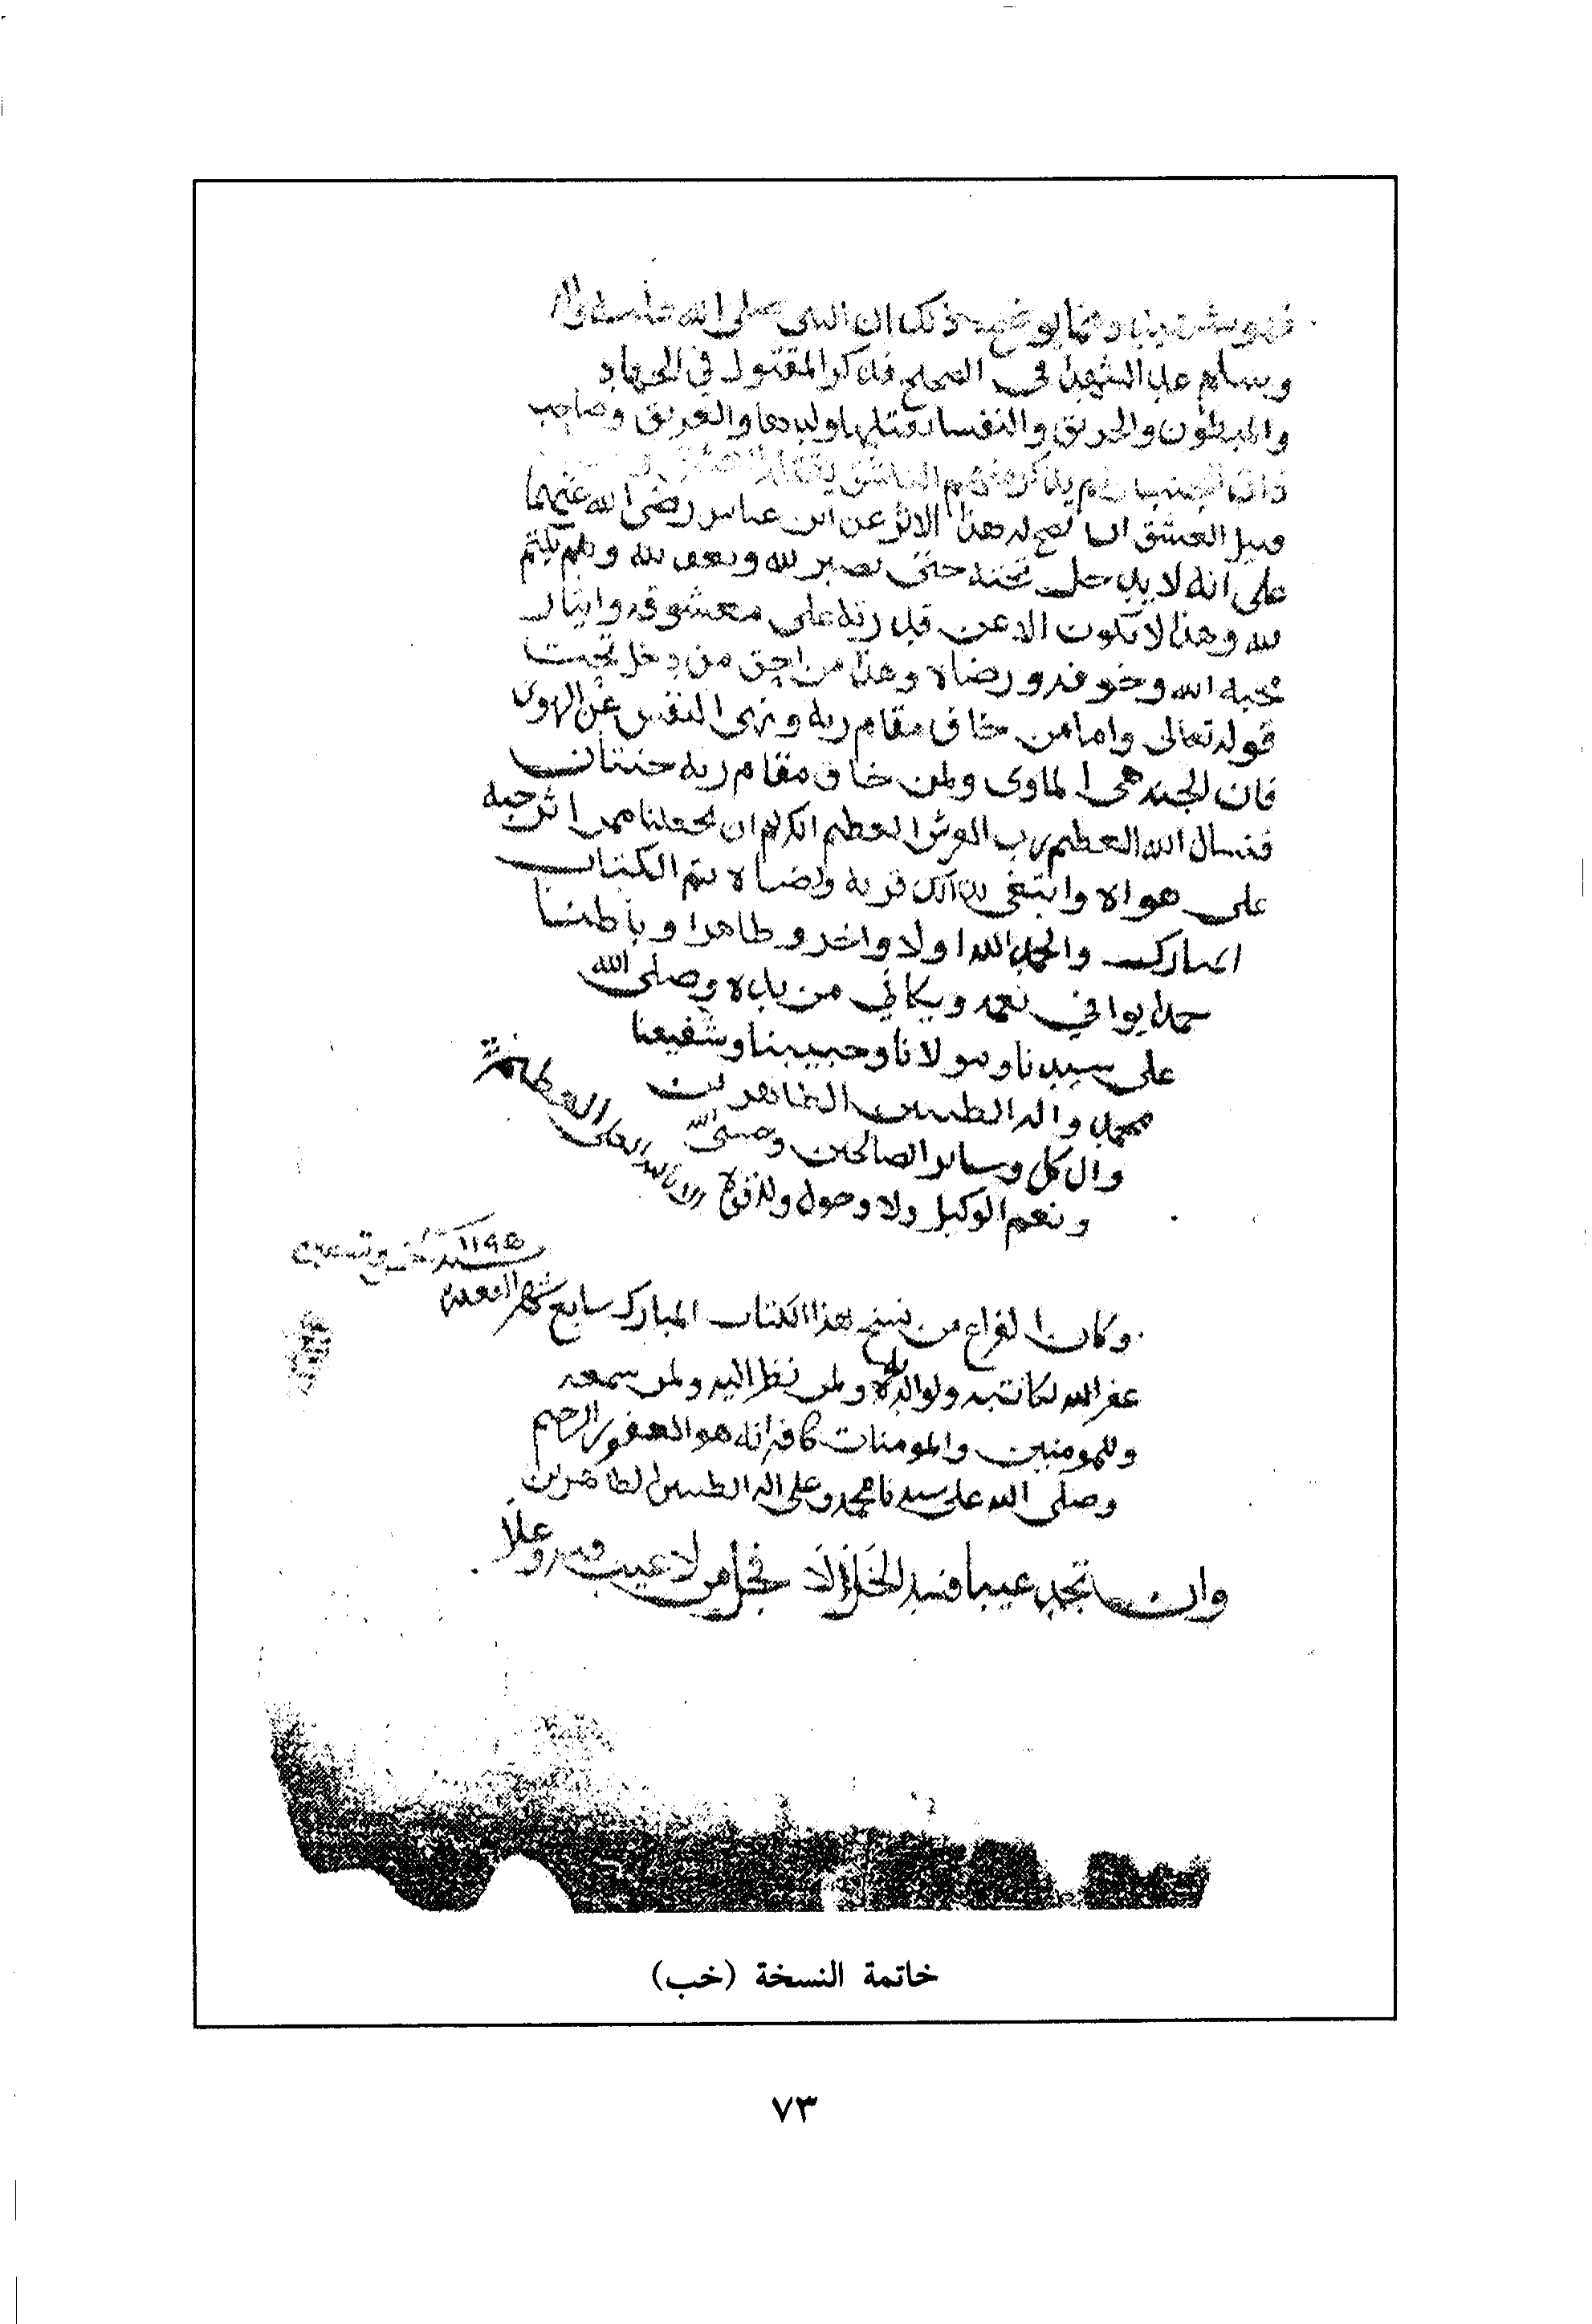 ذلك ان النبي صلى الله عليه واله
وسلم عد الشهدا في الصحيح فذكر المقتول في الجهاد
والمبطون والحريق والنفسا يقتلها ولدها والغريق وصاحب
ذات الجنب ولم يذكر منهم العاشق يقتله العشق
قتيل العشق ان يصح له هذا الاثر عن ابن عباس رضى الله عنهما
على انه لا يدخل الجنه حتى يصبر لله ويعف لله ويكتم
لله وهذا لا يكون الا عن قدرته على معشوقه وايثار
محبه الله وخوفه ورضاه وهذا من احق من دخل تحت
قوله تعالى واما من خاف مقام ربه ونهى النفس عن الهوى
فان الجنه هى الماوى ولمن خاف مقام ربه جنتان
فنسال الله العظيم رب العرش العظيم الكريم ان يجعلنا ممن اثر حبه
على هواه وابتغى بذلك قربه ورضاه تم الكتاب
المبارك والحمد لله اولا واخر وظاهرا وباطنا
حمدا يوافي نعمه ويكافي من يده وصلى الله
على سيدنا ومولانا وحبيبنا وشفيعنا
محمد واله الطيبين الطاهرين
وال كل وساير الصالحين وحسبي الله
ونعم الوكيل ولا وحول ولا قوة الا بالله العلي العظيم
وكان الفراغ من نسخ هذا الكتاب المبارك سابع شهر القعده سنه ١١٩٥ خمس وتسعين
غفر الله لكاتبه ولوالديه ولمن نظر اليه ولمن سمعه
وللمومنين والمومنات كافه انه هو الغفور الرحيم
وصلى الله على سيدنا محمد وعلى اله الطيبين الطاهرين
وان تجد عيبا فسد الخللا فجل من لا عيب فيه وعلا
خاتمة النسخة (خب)
٧٣